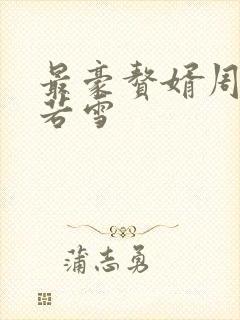 最豪赘婿周
若雪
蒲志勇